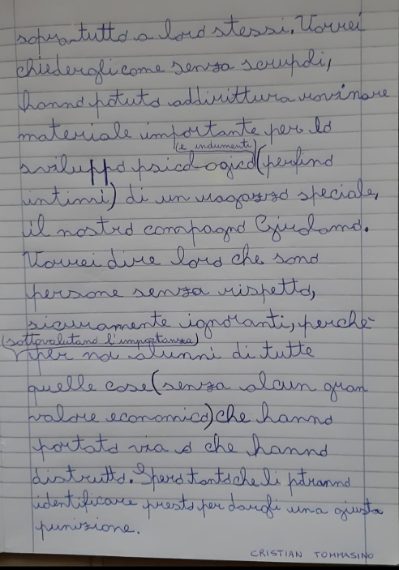 sopratutto a loro stessi. Vorrei
chiedergli come senza scrupoli,
hanno potuto addirittura rovinare
materiale importante per lo
(e indumenti)
sviluppo psicologico (perfino
intimi) di un ragazzo speciale,
il nostro compagno Girolamo.
Vorrei dire loro che sono
persone senza rispetto,
sicuramente ignoranti, perché
(sottovalutano l'importanza)
per noi alunni di tutte
quelle cose (senza alcun gran
valore economico) che hanno
portato via o che hanno
distrutto. Spero tanto che li potranno
identificare presto per dargli una giusta
punizione.
CRISTIAN TOMMASINO